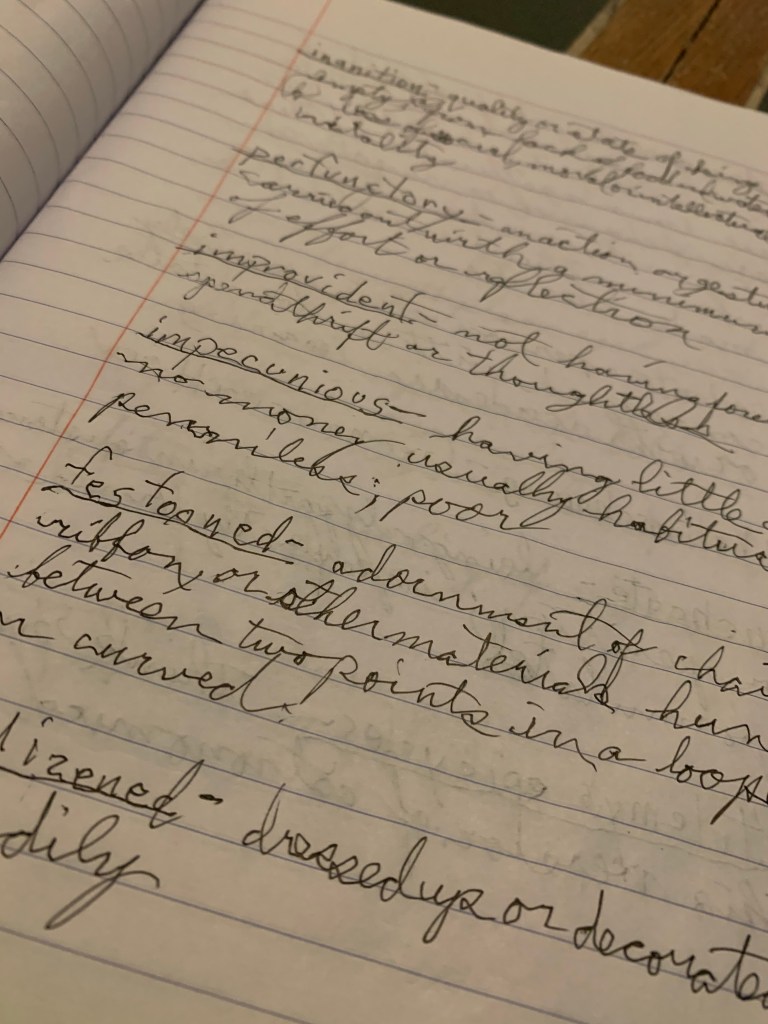 inanition - quality or state of being
empty from lack of food
the social, moral or intellectual
perfunctory - an action or gestu
carried out with a minimum
of effort or reflection
improvident - not having fore
spendthrift or thoughtless
impecunious - having little o
no money usually habitua
penniless; poor
festooned - adornment of chai
ribbon, or other materials hun
between two points in a loop
or curved.
dizened - dressed up or decorate
dily